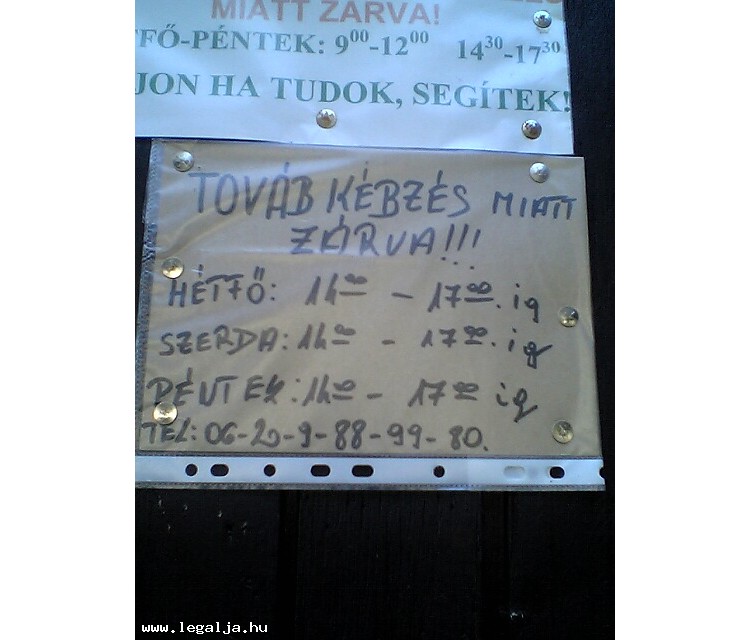 MIATT ZÁRVA!
FŐ-PÉNTEK: 9⁰⁰-12⁰⁰ 14³⁰-17³⁰
JON HA TUDOK, SEGÍTEK!
TOVÁBKÉBZÉS MIATT
ZÁRVA!!!
HÉTFŐ: 14⁰⁰ - 17⁰⁰. ig
SZERDA: 14⁰⁰ - 17⁰⁰. ig
PÉNTEK: 14⁰⁰ - 17⁰⁰ ig
TEL: 06-20-9-88-99-80.
www.legalja.hu